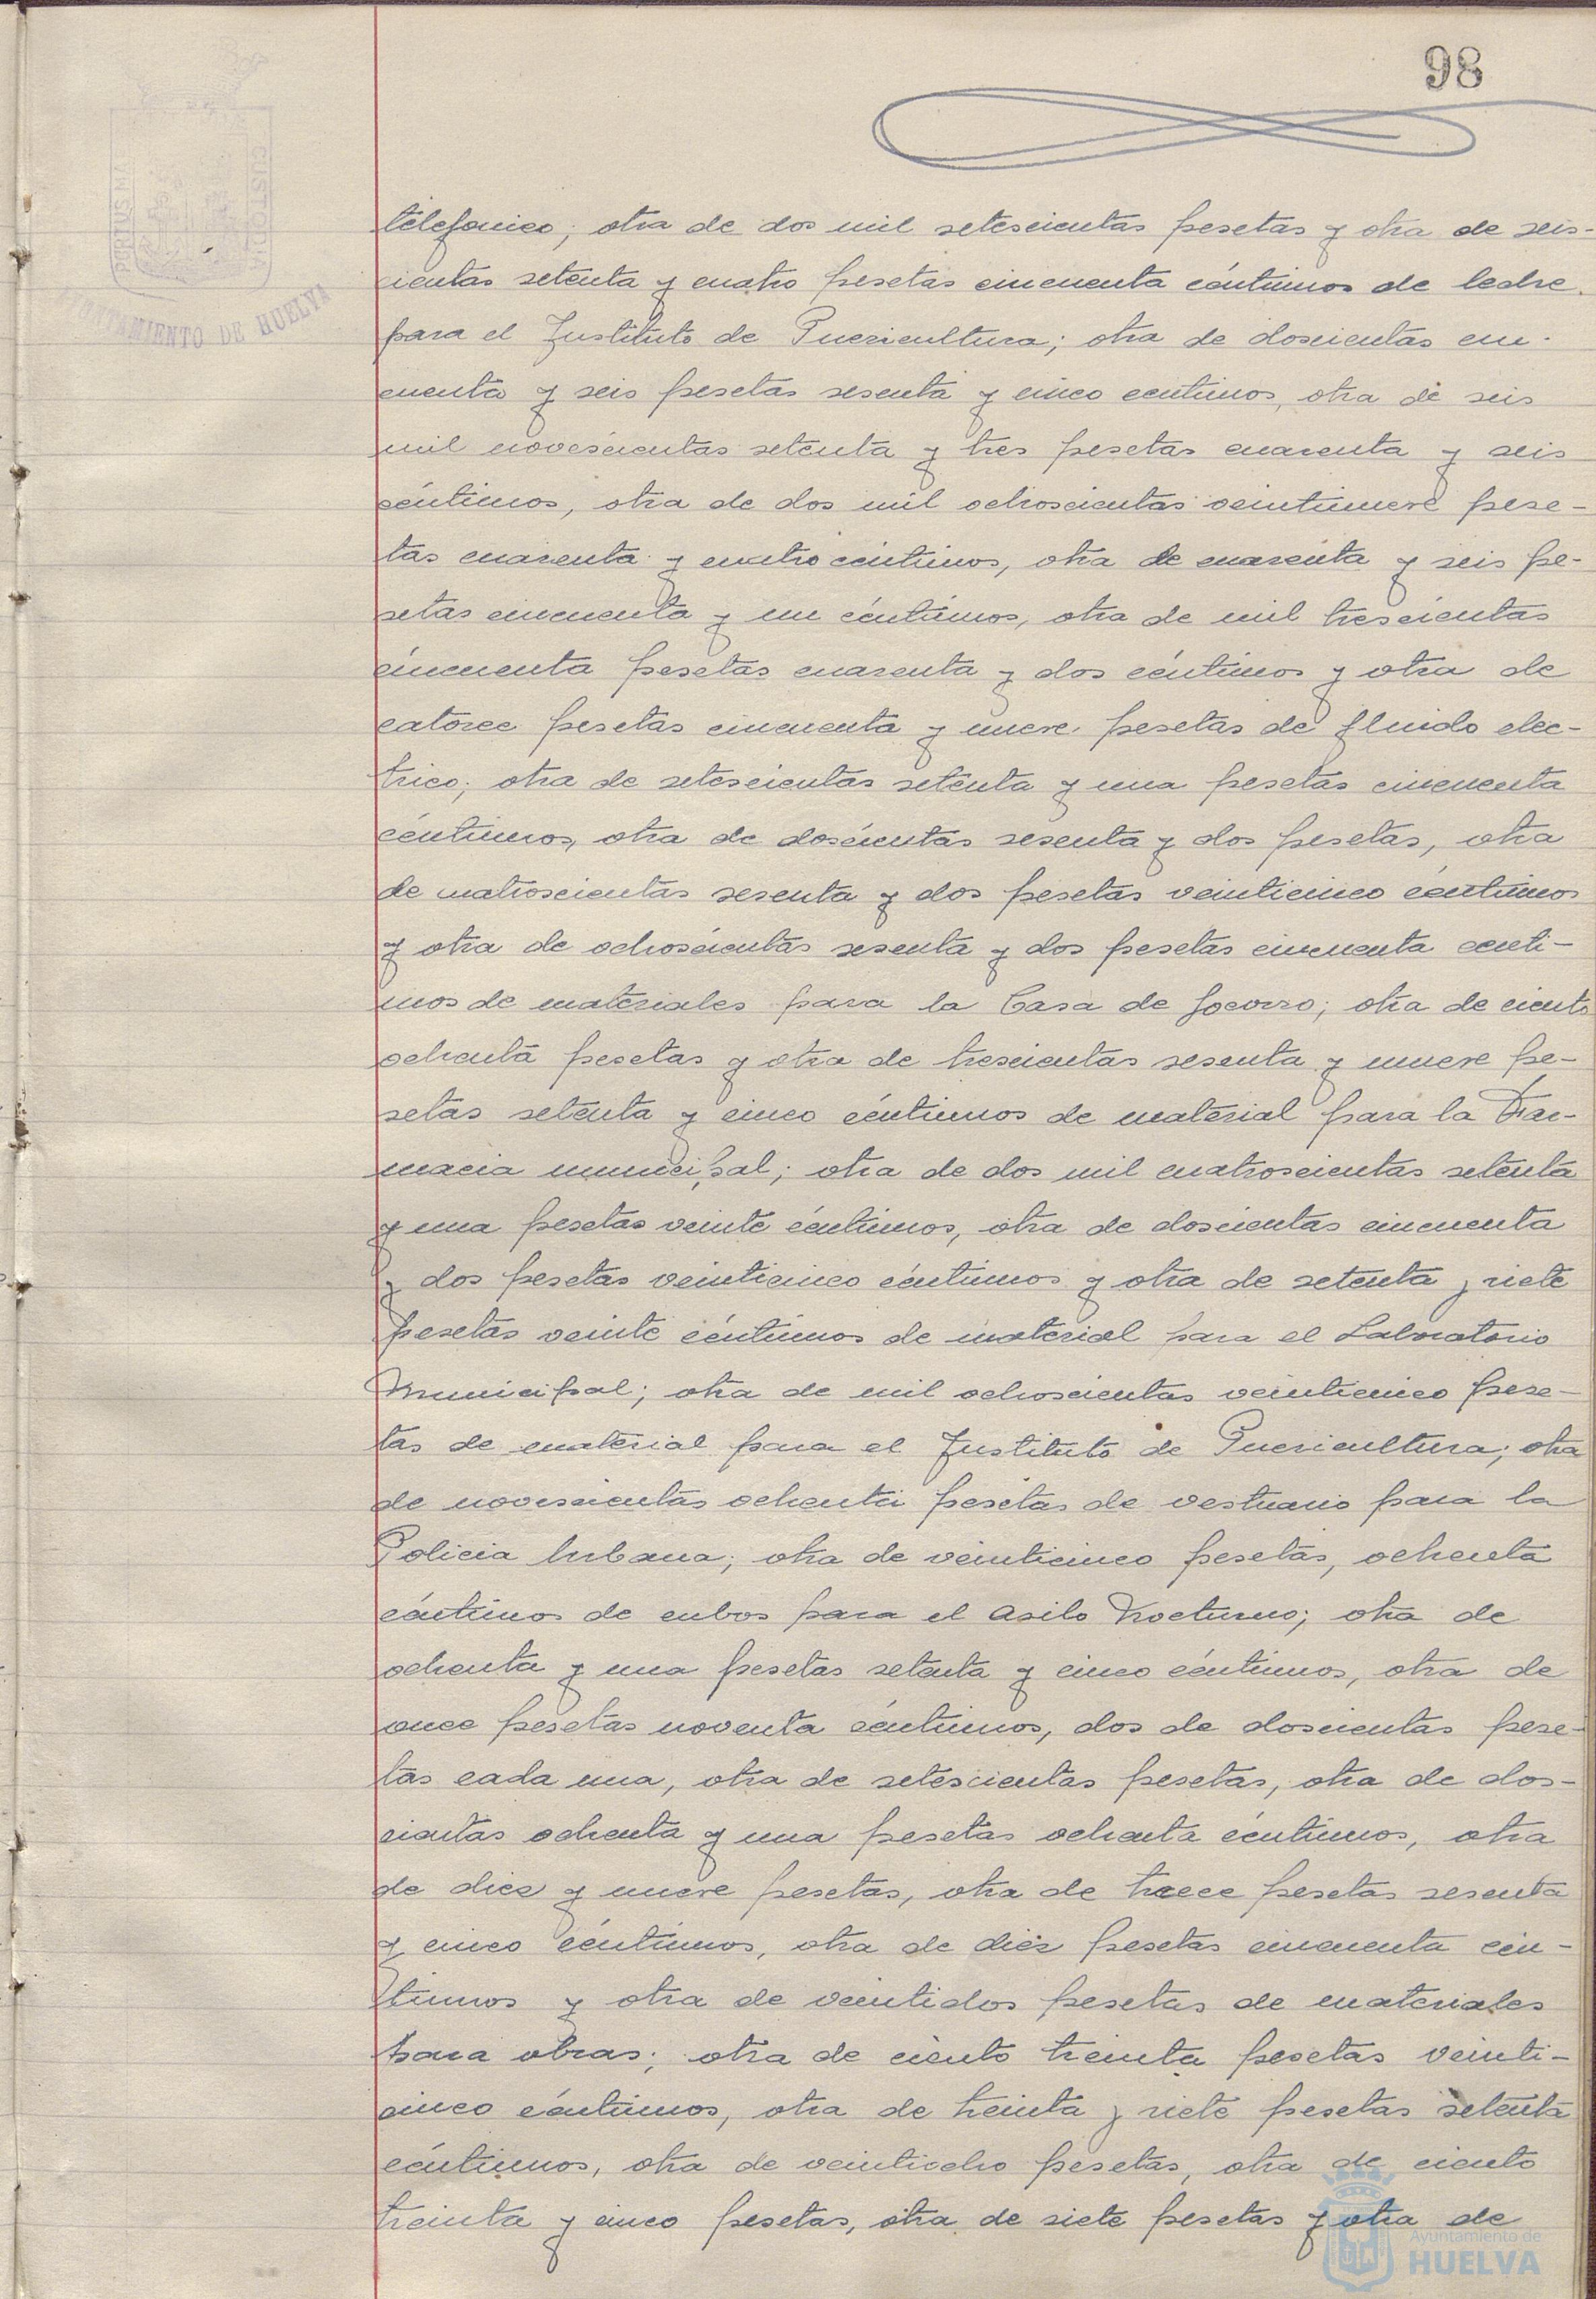 98
PORTUS MARIS
CUSTODIA
AYUNTAMIENTO DE HUELVA
telefonico; otra de dos mil setescientas pesetas y otra de seis-
cientas setenta y cuatro pesetas cincuenta céntimos de leche
para el Instituto de Puericultura; otra de doscientas cin-
cuenta y seis pesetas sesenta y cinco centimos, otra de seis
mil novescientas setenta y tres pesetas cuarenta y seis
céntimos, otra de dos mil ochoscientas veintinueve pese-
tas cuarenta y cuatro céntimos, otra de cuarenta y seis pe-
setas cincuenta y un céntimos, otra de mil trescientas
cincuenta pesetas cuarenta y dos céntimos y otra de
catorce pesetas cincuenta y nueve pesetas de fluido elec-
trico; otra de setescientas setenta y una pesetas cincuenta
céntimos, otra de doscientas sesenta y dos pesetas, otra
de cuatroscientas sesenta y dos pesetas veinticinco céntimos
y otra de ochoscientas sesenta y dos pesetas cincuenta centi-
mos de materiales para la Casa de Socorro; otra de ciento
ochenta pesetas y otra de trescientas sesenta y nueve pe-
setas setenta y cinco céntimos de material para la Far-
macia municipal; otra de dos mil cuatroscientas setenta
y una pesetas veinte céntimos, otra de doscientas cincuenta
y dos pesetas veinticinco céntimos y otra de setenta y siete
pesetas veinte céntimos de material para el Laboratorio
Municipal; otra de mil ochoscientas veinticinco pese-
tas de material para el Instituto de Puericultura; otra
de novescientas ochenta pesetas de vestuario para la
Policia Urbana; otra de veinticinco pesetas, ochenta
céntimos de cubos para el Asilo Nocturno; otra de
ochenta y una pesetas setenta y cinco céntimos, otra de
once pesetas noventa céntimos, dos de doscientas pese-
tas cada una, otra de setescientas pesetas, otra de dos-
cientas ochenta y una pesetas ochenta céntimos, otra
de diez y nueve pesetas, otra de trece pesetas sesenta
y cinco céntimos, otra de diez pesetas cincuenta cén-
timos y otra de veintidos pesetas de materiales
para obras; otra de ciento treinta pesetas veinti-
cinco céntimos, otra de treinta y siete pesetas setenta
céntimos, otra de veintiocho pesetas, otra de ciento
treinta y cinco pesetas, otra de siete pesetas y otra de
Ayuntamiento de
HUELVA